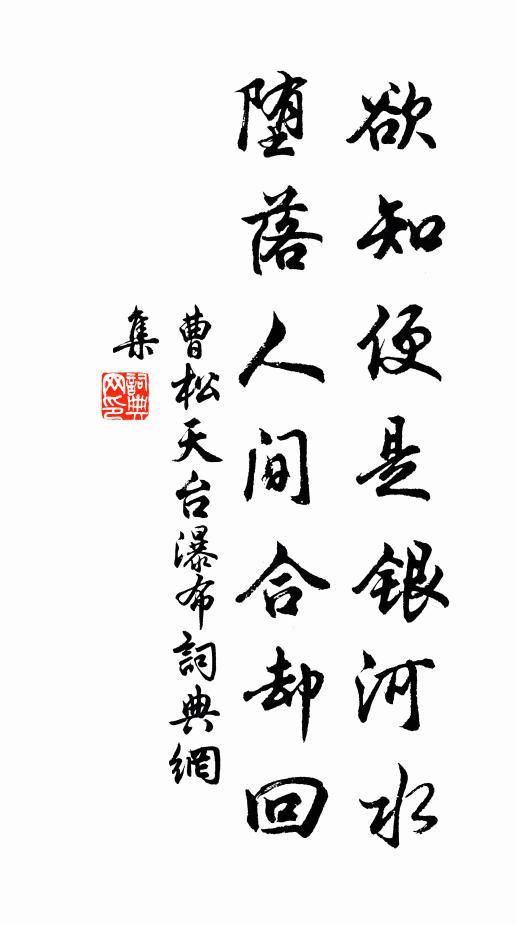 欲知便是銀河水
堕落人间合却回
曹松天台瀑布詞典網
集
詞典网印